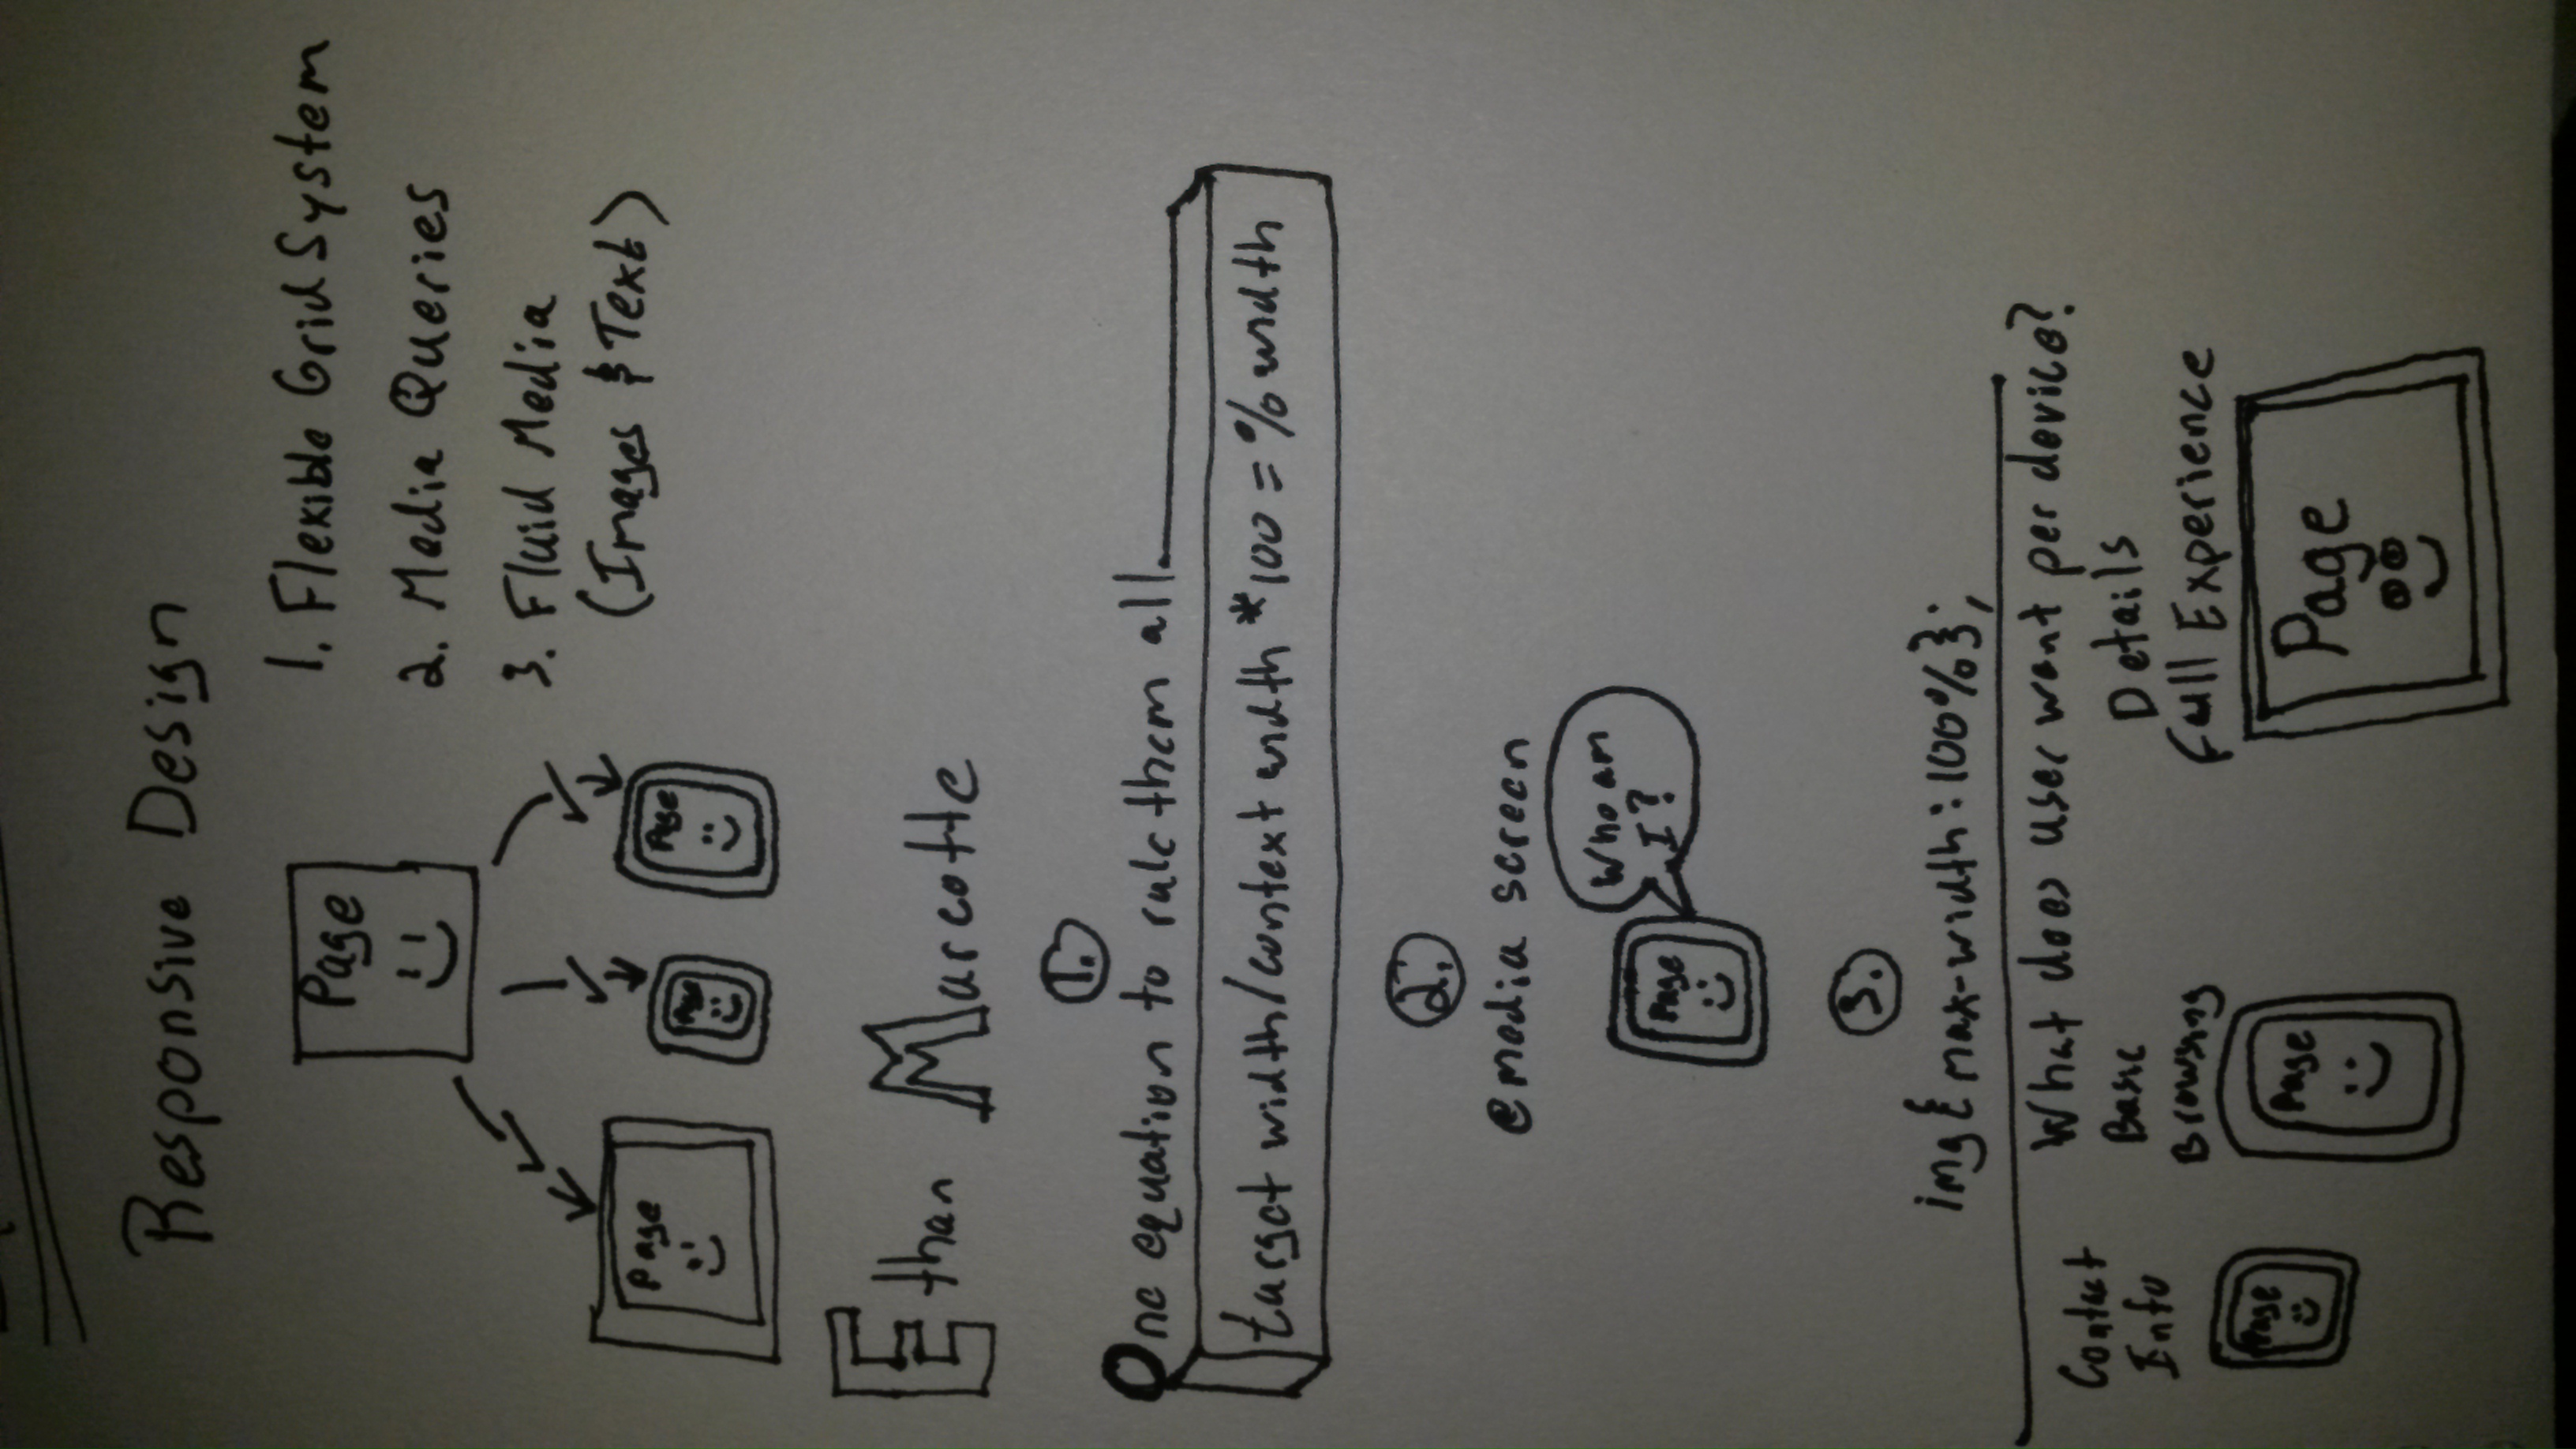 Responsive Design
Page
1. Flexible Grid System
2. Media Queries
3. Fluid Media
(Images & Text)
Page
Page
Page
Ethan Marcotte
1.
One equation to rule them all
target width/context width *100 = % width
2.
@media screen
Who am
I?
Page
3.
img{max-width:100%};
What does user want per device?
Contact
Info
Basic
Browsing
Details
Full Experience
Page
Page
Page